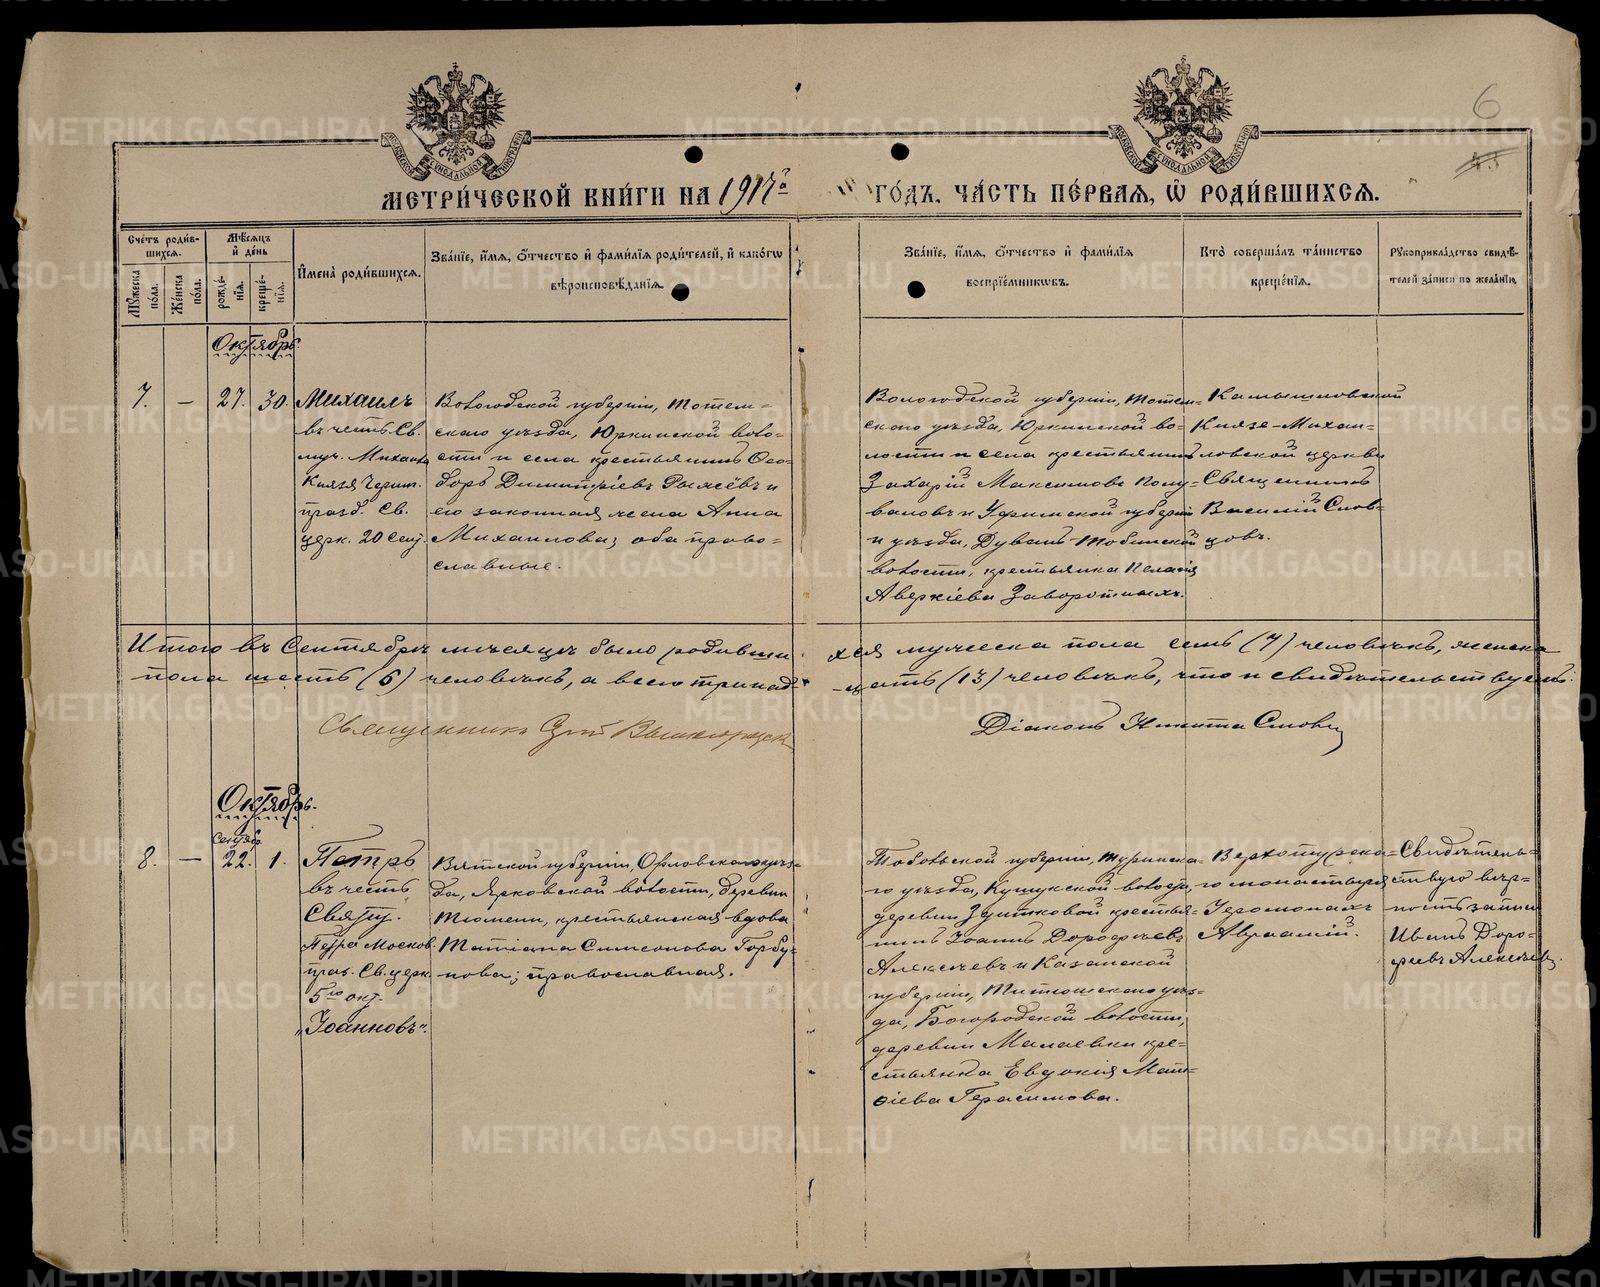 6
МЕТРИ́ЧЕСКОЙ КНИ́ГИ НА 1917го ГО́ДЪ, ЧА́СТЬ ПЕ́РВАЯ, Ѡ РОДИ́ВШИХСѦ.
Сче́тъ роди́в-
шихся.
Мѣ́сяцъ
и́ де́нь
Му́жеска по́ла.
Же́нска по́ла.
рожде́-
нїѧ.
креще́-
нїѧ.
И҆мена̀ роди́вшихся.
Зва́нїе, и҆́мѧ, ѻ҆́тчество и҆ фами́лїѧ роди́телей, и҆ како́гѡ
вѣроисповѣ́данїѧ.
Зва́нїе, и҆́мѧ, ѻ҆́тчество и҆ фами́лїѧ
воспрїе́мникѡвъ.
Кто̀ соверша́лъ та́инство
креще́нїѧ.
Рꙋкоприкла́дство свидѣ́-
телей за́писи по жела́нїю.
Октябрь.
7.
—
27.
30.
Михаилъ
въ честь Св.
муч. Михаила
Князя Черниг.
празд. Св.
церк. 20 Сент.
Вологодской губерніи, Тотем-
скаго уѣзда, Юркинской воло-
сти и села крестьянинъ Ѳео-
доръ Димитріевъ Рыжёвъ и
его законная жена Анна
Михаилова; оба право-
славные.
Вологодской губерніи, Тотем-
скаго уѣзда, Юркинской во-
лости и села крестьянинъ
Захарій Максимовъ Полу-
валовъ и Уфимской губерніи
и уѣзда, Дуванъ-Табынской
волости, крестьянка Пелагія
Аверкіева Заворотныхъ.
Камышловской
Князе-Михаи-
ловской церкви
Священникъ
Василій Слов-
цовъ.
Итого въ Сентябрѣ мѣсяцѣ было родивши
хся мужеска пола семь (7) человѣкъ, женска
пола шесть (6) человѣкъ, а всего тринад-
-цать (13) человѣкъ, что и свидѣтельствуемъ:
Священникъ
Діаконъ Никита Словц
Октябрь.
Сентябр.
8.
—
22.
1.
Петръ
въ честь
Святит.
Петра Москов.
праз. Св. церк.
5го окт.
„Іоанновъ“.
Вятской губерніи, Орловскаго уѣз-
да, Ярковской волости, деревни
Тюмени, крестьянская вдова
Татіана Симеонова Горбу-
нова; православная.
Тобольской губерніи, Туринска-
го уѣзда, Кушукской волости,
деревни Здитковой крестья-
нинъ Іоаннъ Дороѳеевъ
Алексѣевъ и Казанской
губерніи, Тетюшскаго уѣз-
да, Богородской волости,
деревни Малаевки кре-
стьянка Евдокія Мат-
ѳіева Герасимова.
Верхотурска-
го монастыря
Іеромонахъ
Авраамій.
Свидѣтель-
ствую вѣр-
ность записи
Иванъ Доро-
фѣевъ Алексѣевъ.